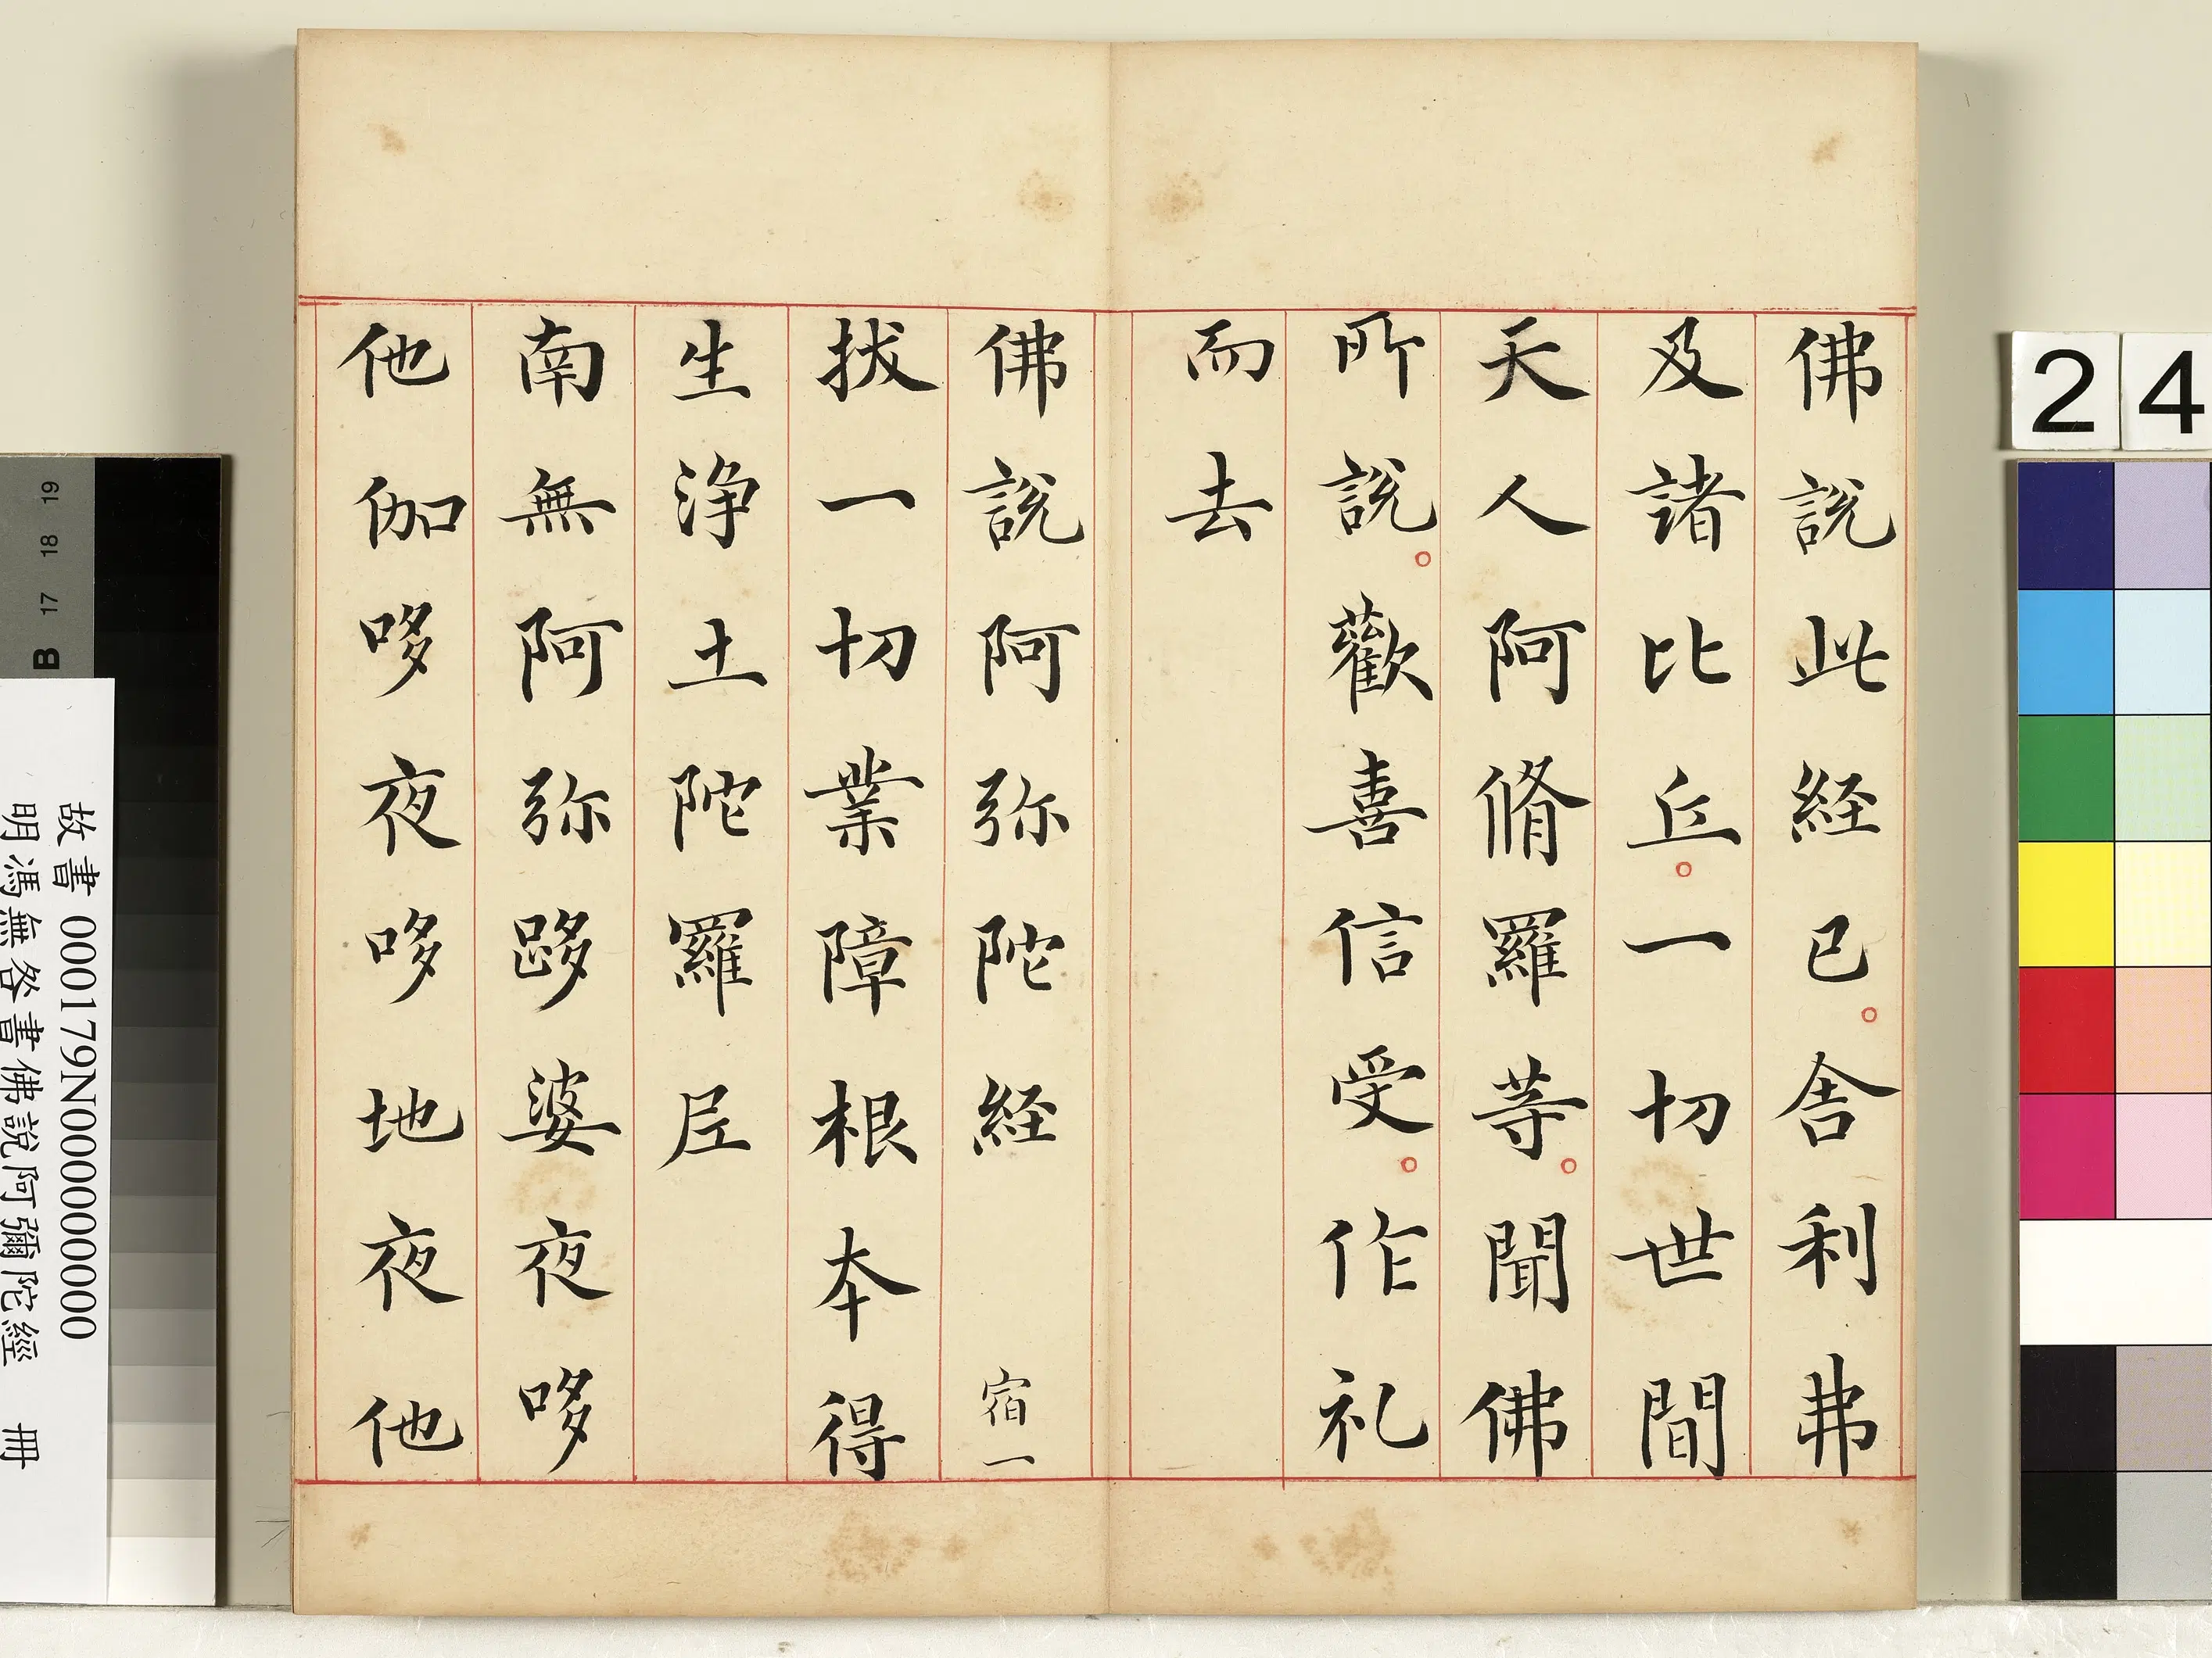 佛說此経已。舎利弗
及諸比丘。一切世間
天人阿脩羅等。聞佛
所說。歡喜信受。作礼
而去
佛說阿弥陀経 宿一
拔一切業障根本得
生淨土陀羅尼
南無阿弥哆婆夜哆
他伽哆夜哆地夜他
24
19
18
17
B
故書 000179N000000000
明馮無咎書佛說阿彌陀經 冊